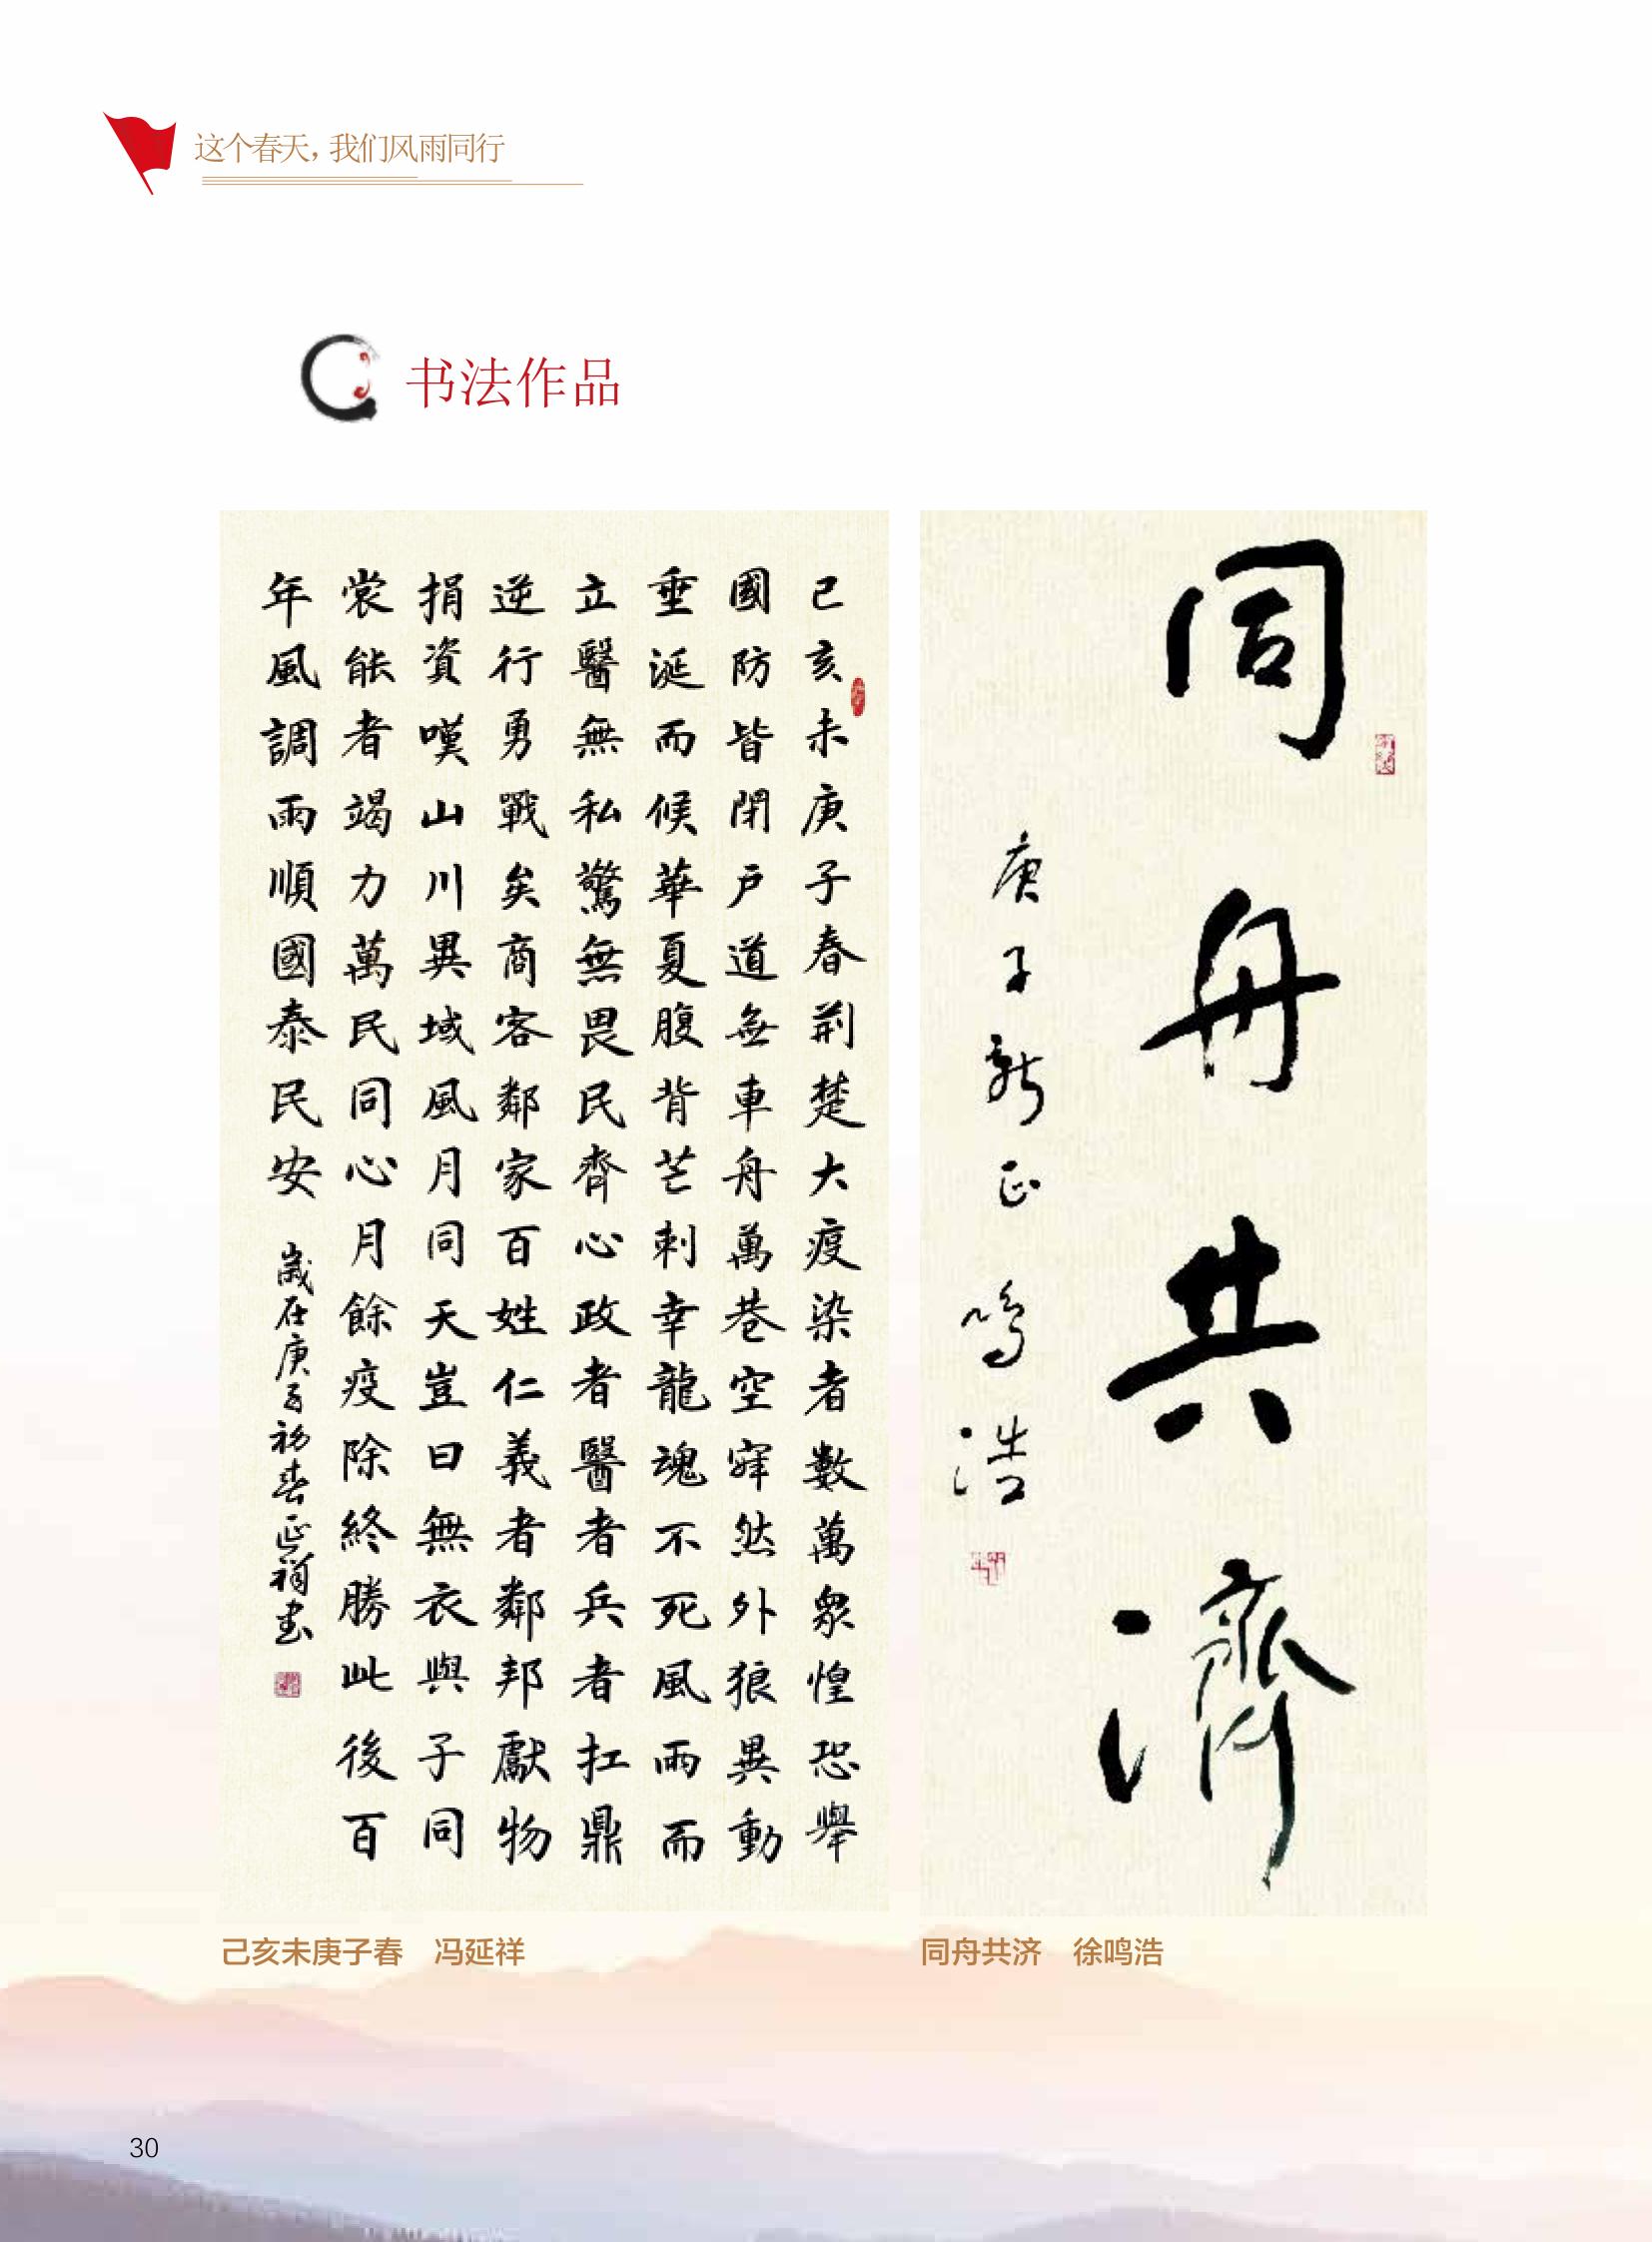 这个春天，我们风雨同行
书法作品
己亥未庚子春荆楚大疫染者數萬衆惶恐舉
國防皆閉戶道無車舟萬巷空寂然外狼異動
垂涎而候華夏腹背芒刺幸龍魂不死風雨而
立醫無私驚無畏民齊心政者醫者兵者扛鼎
逆行勇戰矣商客鄰家百姓仁義者鄰邦獻物
捐資嘆山川異域風月同天豈曰無衣與子同
裳能者竭力萬民同心月餘疫除終勝此後百
年風調雨順國泰民安
歲在庚子初春延祥書
同舟共濟
庚子新正鳴浩
己亥未庚子春 冯延祥
同舟共济 徐鸣浩
30